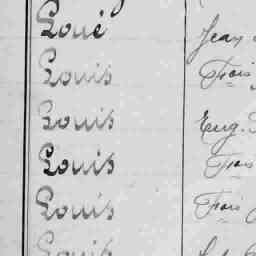 Loué Jean
Louis Frois
Louis Eug.
Louis Frois
Louis Frois
Louis